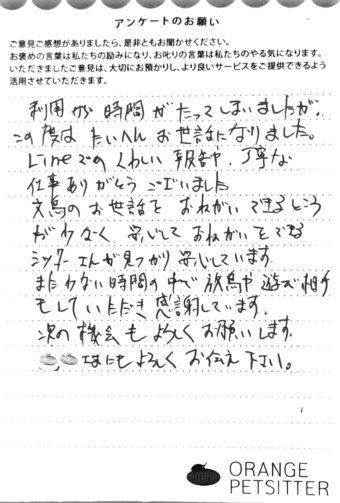 アンケートのお願い
ご意見ご感想がありましたら、是非ともお聞かせください。
お褒めの言葉は私たちの励みになり、お叱りの言葉は私たちのやる気になります。
いただきましたご意見は、大切にお預かりし、より良いサービスをご提供できるよう
活用させていただきます。
利用から時間がたってしまいましたが、
この度はたいへんお世話になりました。
Lineでのくわしい報告や、丁寧な
仕事ありがとうございました
文鳥のお世話をおねがいできるところ
がわなく、安心しておねがいをできる
シッターさんが見つかり安心しています。
またわない時間の中で放鳥や遊び相手
もしていただき感謝しています。
次の機会もよろしくお願いします。
にもよろしくお伝え下さい。
ORANGE
PETSITTER